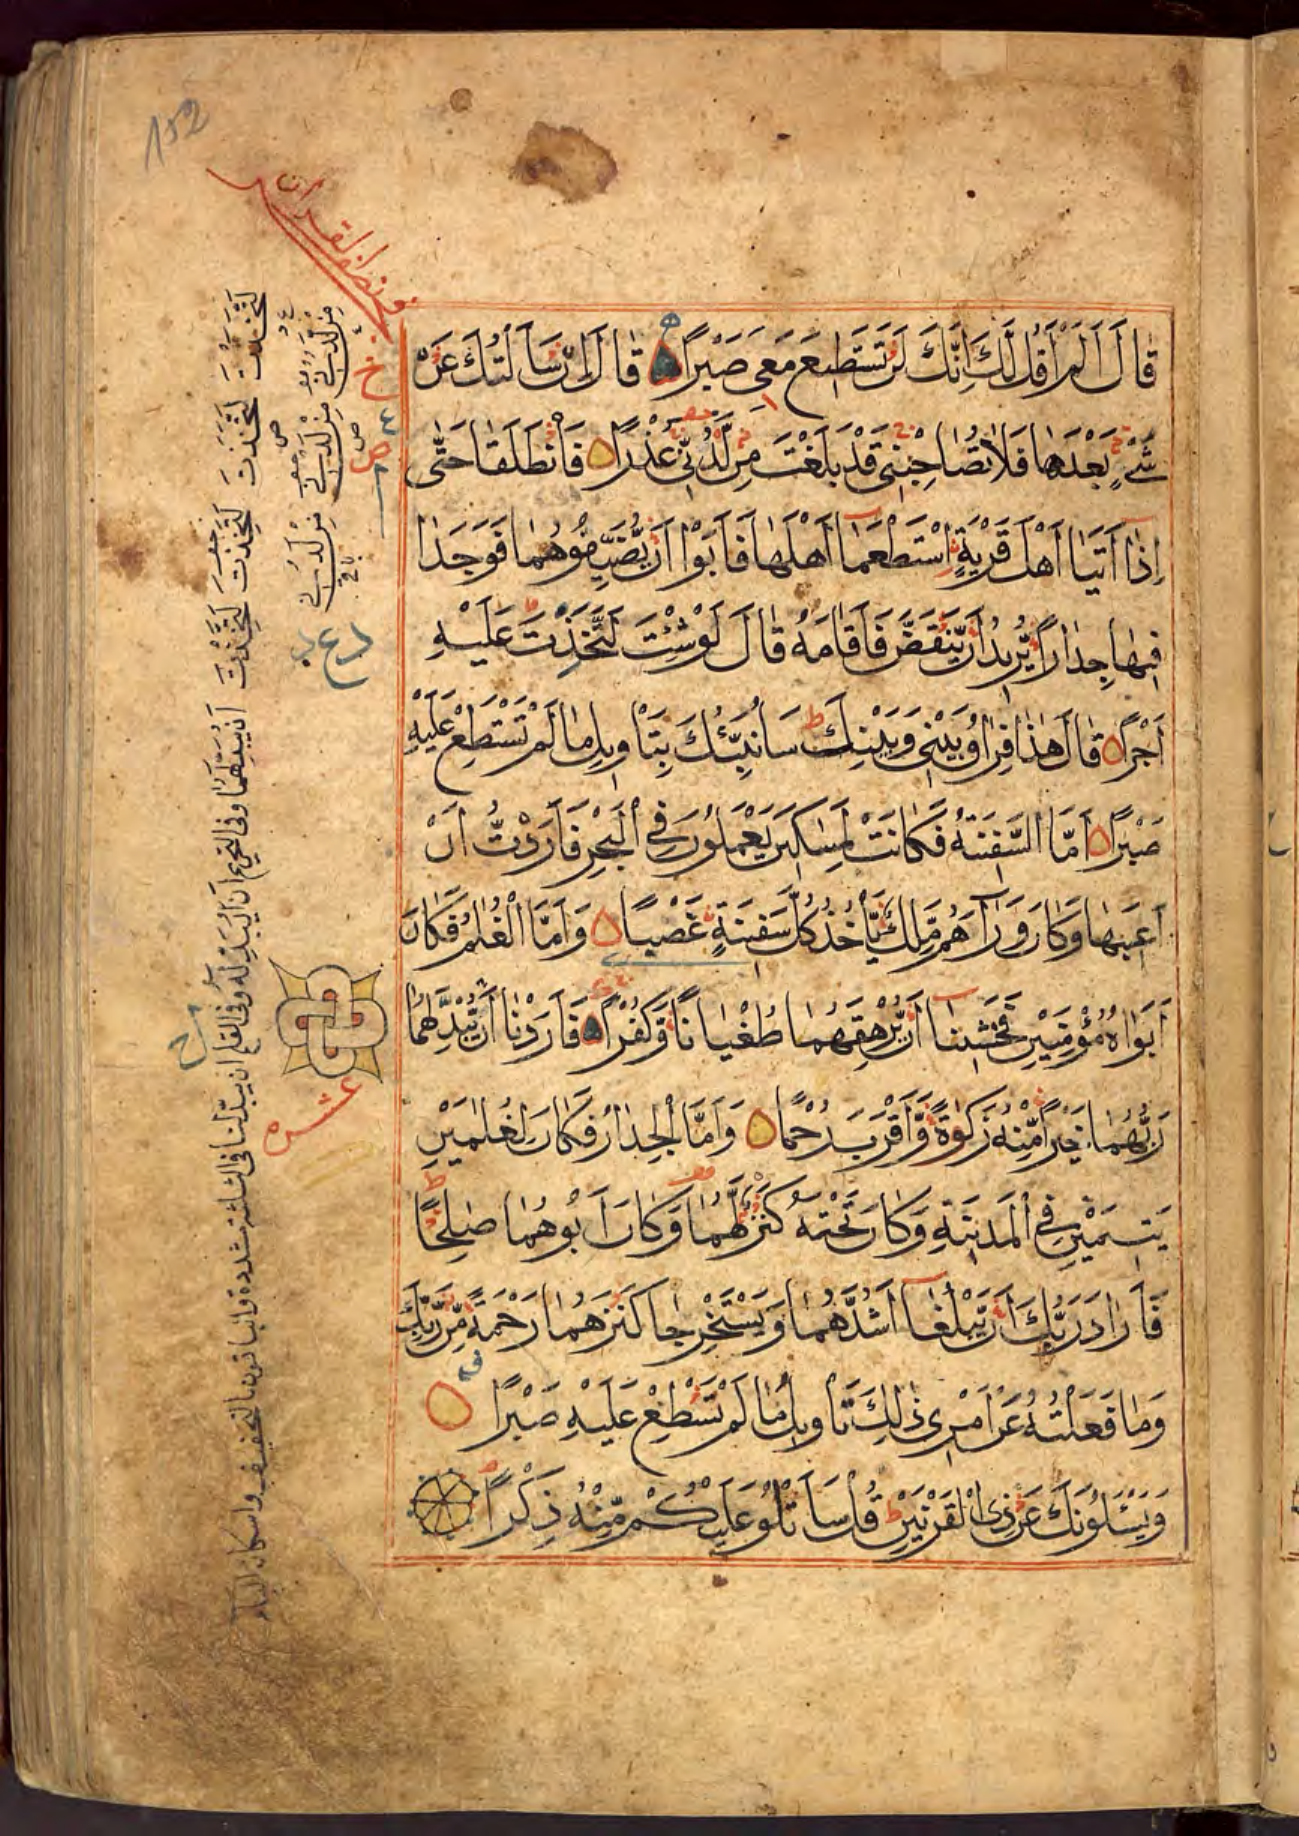 152
قَالَ أَلَمْ أَقُل لَّكَ إِنَّكَ لَن تَسْتَطِيعَ مَعِيَ صَبْرًا قَالَ إِن سَأَلْتُكَ عَن
شَيْءٍ بَعْدَهَا فَلَا تُصَاحِبْنِي قَدْ بَلَغْتَ مِن لَّدُنِّي عُذْرًا فَانطَلَقَا حَتَّى
إِذَا أَتَيَا أَهْلَ قَرْيَةٍ اسْتَطْعَمَا أَهْلَهَا فَأَبَوْا أَن يُضَيِّفُوهُمَا فَوَجَدَا
فِيهَا جِدَارًا يُرِيدُ أَن يَنقَضَّ فَأَقَامَهُ قَالَ لَوْ شِئْتَ لَتَّخَذْتَ عَلَيْهِ
أَجْرًا قَالَ هَذَا فِرَاقُ بَيْنِي وَبَيْنِكَ سَأُنَبِّئُكَ بِتَأْوِيلِ مَا لَمْ تَسْتَطِعْ عَلَيْهِ
صَبْرًا أَمَّا السَّفِينَةُ فَكَانَتْ لِمَسٰكِينَ يَعْمَلُونَ فِي الْبَحْرِ فَأَرَدْتُّ أَنْ
أَعِيبَهَا وَكَانَ وَرَآءَهُم مَّلِكٌ يَأْخُذُ كُلَّ سَفِينَةٍ غَصْبًا وَأَمَّا الْغُلٰمُ فَكَانَ
أَبَوَاهُ مُؤْمِنَيْنِ فَخَشِينَا أَن يُرْهِقَهُمَا طُغْيَانًا وَكُفْرًا فَأَرَدْنَا أَن يُبَدِّلَهُمَا
رَبُّهُمَا خَيْرًا مِّنْهُ زَكٰوةً وَأَقْرَبَ رُحْمًا وَأَمَّا الْجِدَارُ فَكَانَ لِغُلٰمَيْنِ
يَتِيمَيْنِ فِي الْمَدِينَةِ وَكَانَ تَحْتَهُ كَنزٌ لَّهُمَا وَكَانَ أَبُوهُمَا صٰلِحًا
فَأَرَادَ رَبُّكَ أَن يَبْلُغَا أَشُدَّهُمَا وَيَسْتَخْرِجَا كَنزَهُمَا رَحْمَةً مِّن رَّبِّكَ
وَمَا فَعَلْتُهُ عَنْ أَمْرِي ذٰلِكَ تَأْوِيلُ مَا لَمْ تَسْطِعْ عَلَيْهِ صَبْرًا
وَيَسْـَٔلُونَكَ عَن ذِي الْقَرْنَيْنِ قُلْ سَأَتْلُو عَلَيْكُم مِّنْهُ ذِكْرًا
عشره